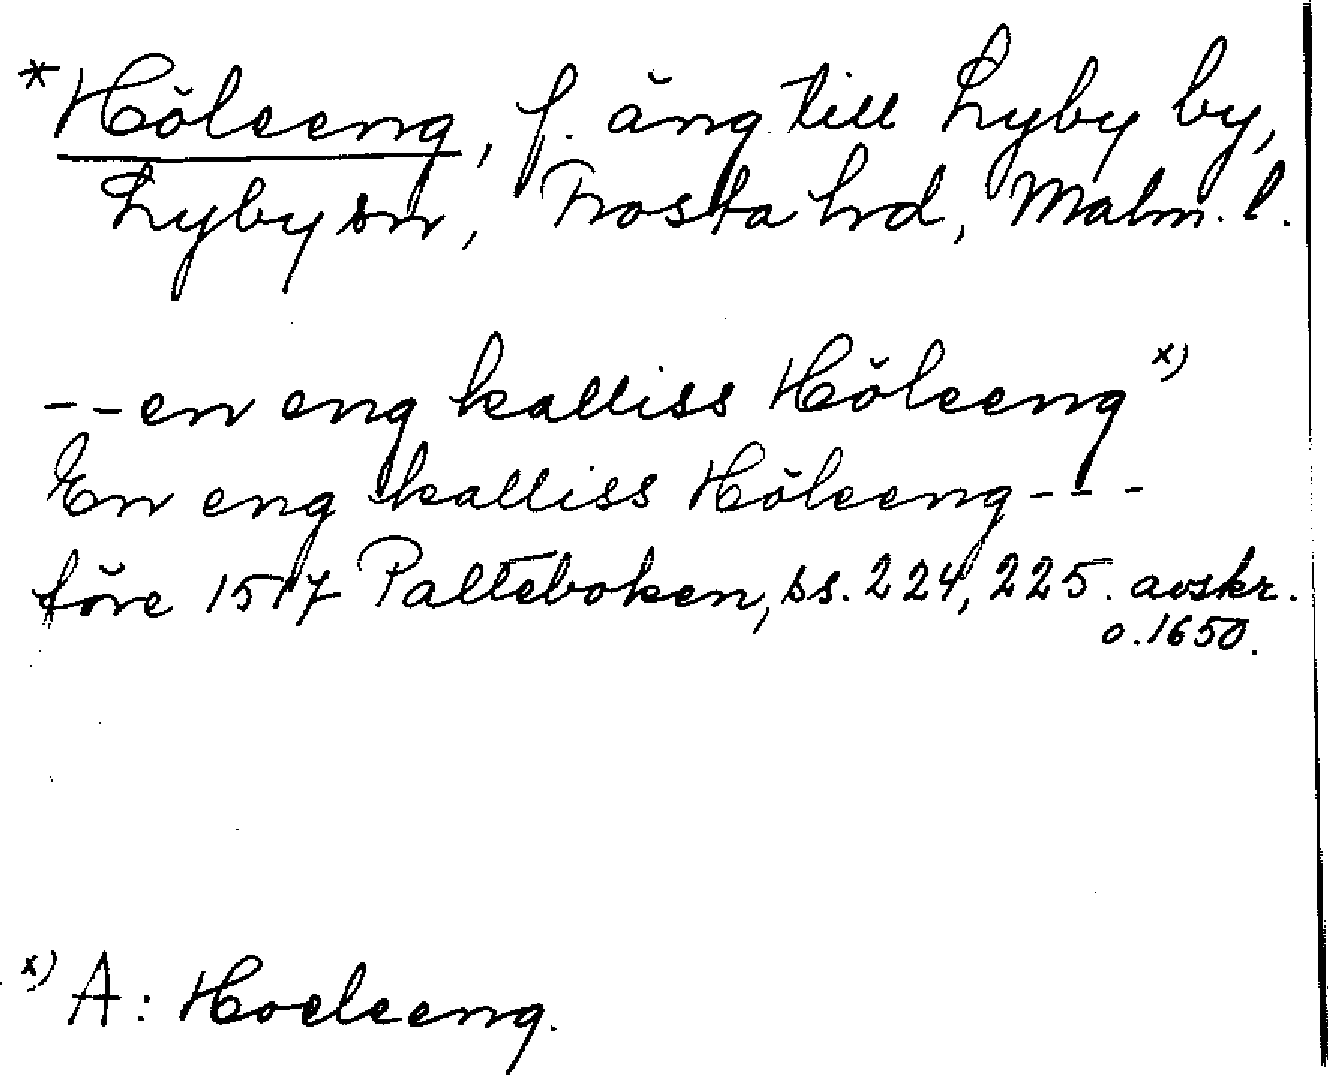 *Höleeng, f. äng till Lyby by,
Lyby sn, Frosta hrd, Malm. l.
--en eng kalliss Höleeng x)
En eng kalliss Höleeng---
före 1517 Palteboken, ss. 224, 225. avskr.
o. 1650.
x) A: Hoeleeng.